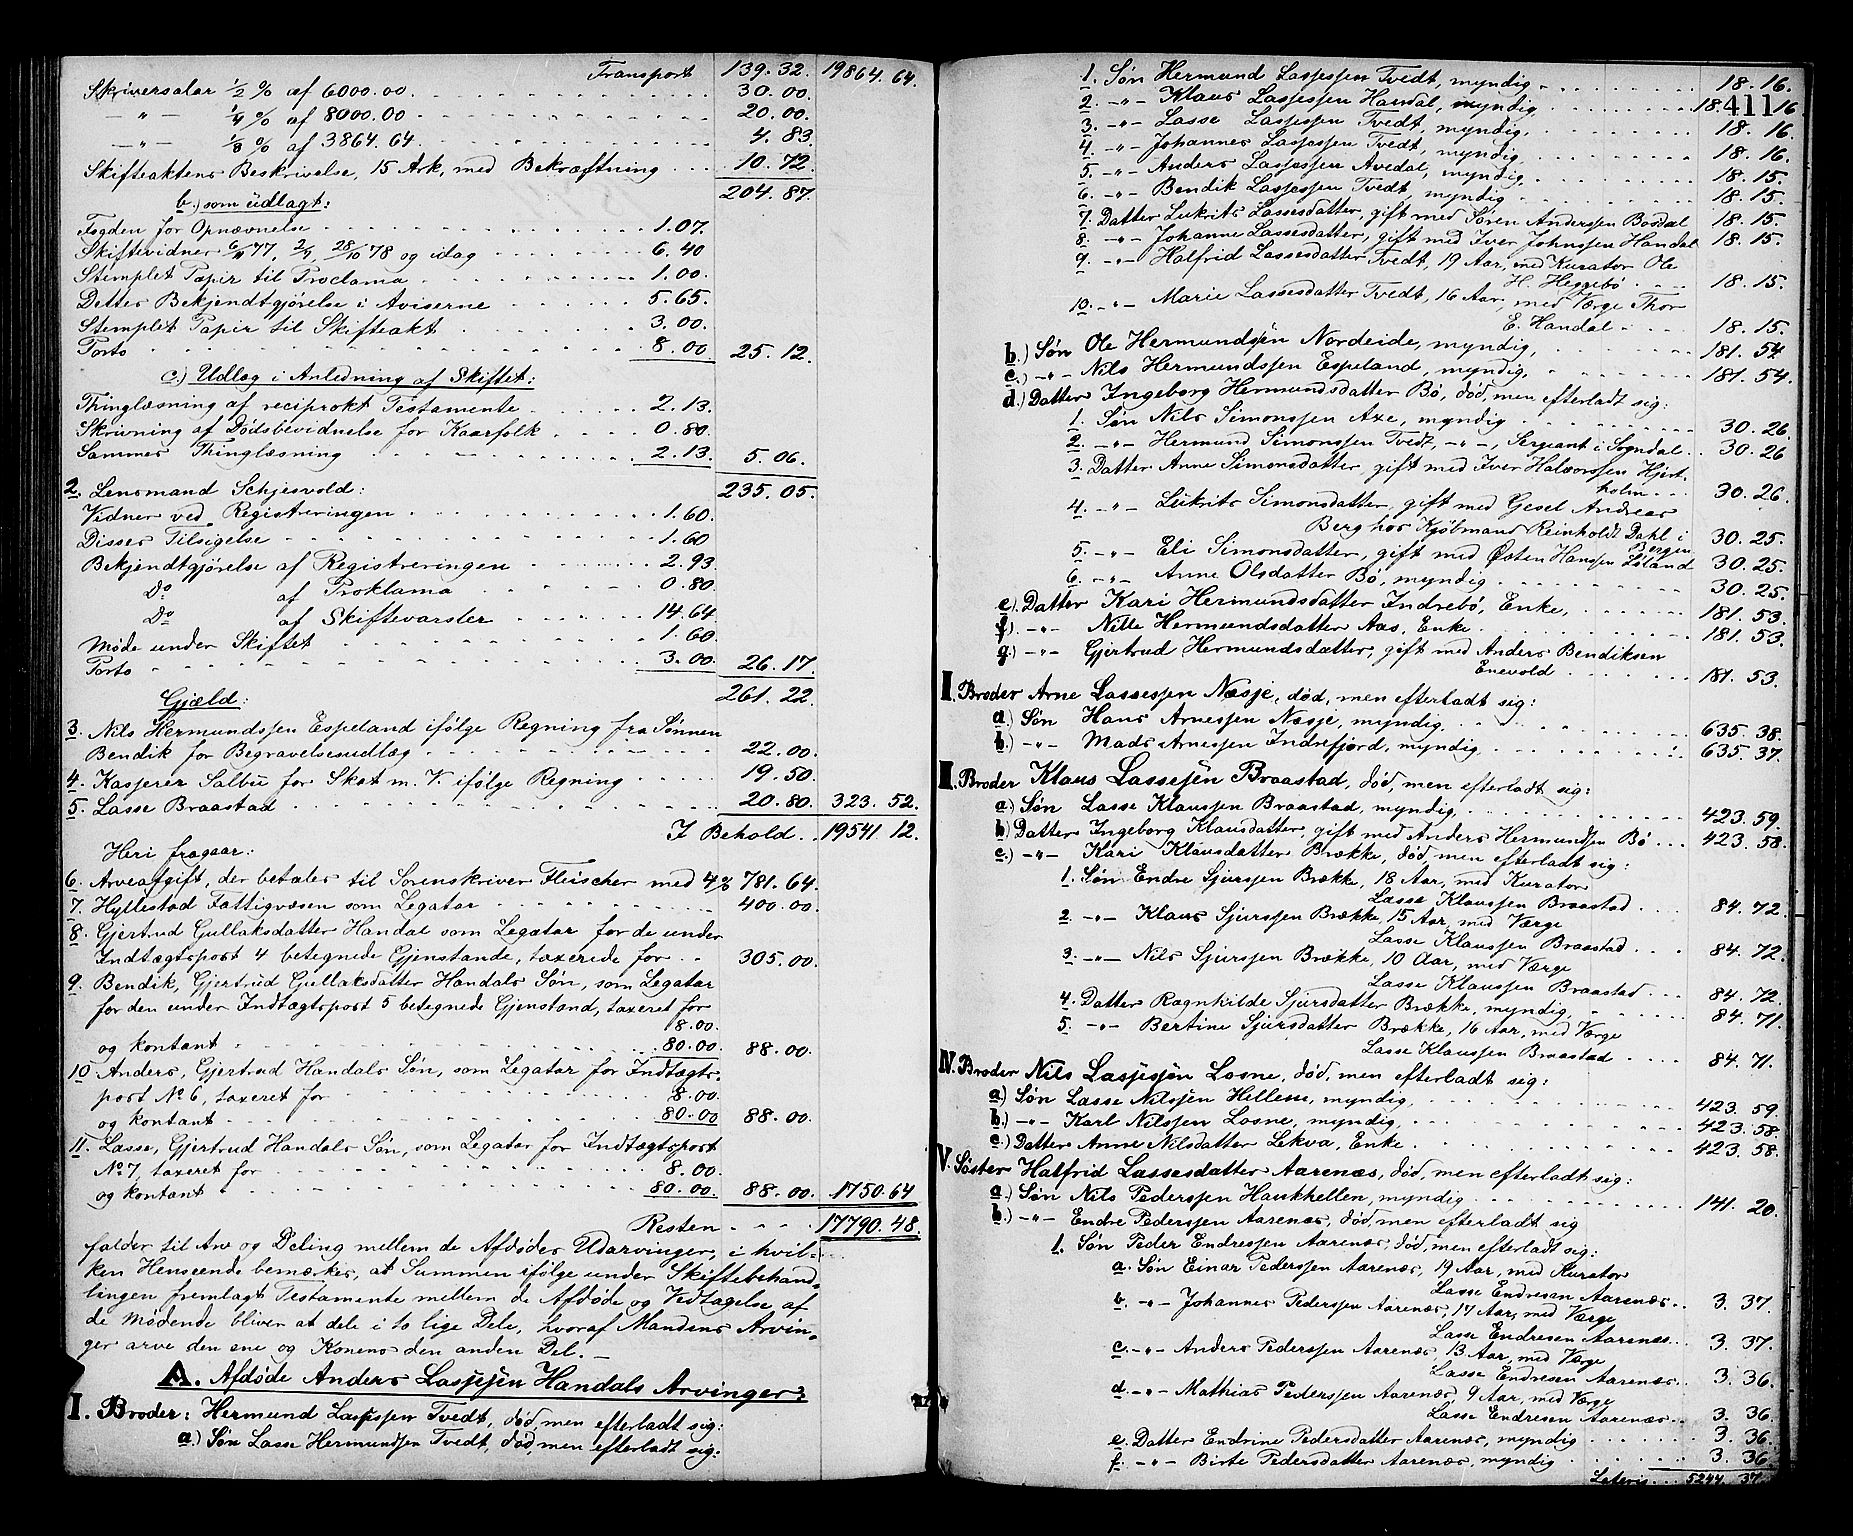 Transport 139.32. 19864.64.
Skriversalar ½ % af 6000.00. 30.00.
— " — ¼ % af 8000.00 20.00.
— " — ⅛ % af 3864.64. 4.83
Skifteaktens Beskrivelse, 15 Ark, med Bekræftning 10.72
b.) som udlagt: 204.87.
Fogden for Opnævnelse 1.07.
Skiftevidner 6/11 77, 2/4, 28/10 78 og idag 6.40
Stemplet Papir til Proclama 1.00.
Dettes Bekjendtgjørelse i Aviserne 5.65.
Stemplet Papir til Skifteakt 3.00.
Porto 8.00 25.12.
c.) Udlæg i Anledning af Skiftet:
Thinglæsning af reciprokt Testamente 2.13.
Skrivning af Dødsbevidnelse for Kaarfolk 0.80.
Sammes Thinglæsning 2.13. 5.06.
2. Lensmand Schjesvold: 235.05.
Vidner ved Registreringen 1.60.
Disses Tilsigelse 1.60
Bekjendtgjørelse af Registreringen 2.93
Do af Proklama 0.80
Do af Skiftevarsler 14.64
Møde under Skiftet 1.60
Porto 3.00. 26.17.
Gjæld: 261.22.
3. Nils Hermundssen Espeland ifølge Regning fra Sønnen
Bendik for Begravelsesudlæg 22.00.
4. Kasserer Salbu for Skat m. V. ifølge Regning 19.50.
5. Lasse Braastad 20.80. 323.52.
I Behold 19541.12.
Heri fragaar:
6. Arveafgift, der betales til Sorenskriver Fleischer med 4% 781.64.
7. Hyllestad Fattigvæsen som Legatar 400.00.
8. Gjertrud Gullaksdatter Handal som Legatar for de under
Indtægtspost 4 betegnede Gjenstande, taxerede for 305.00.
9. Bendik, Gjertrud Gullaksdatter Handals Søn, som Legatar
for den under Indtægtspost 5 betegnede Gjenstand, taxeret for
8.00.
og kontant 80.00. 88.00.
10. Anders, Gjertrud Handals Søn, som Legatar for Indtægts-
post No 6, taxeret for 8.00.
og kontant 80.00 88.00.
11. Lasse, Gjertrud Handals Søn, som Legatar for Indtægtspost
No 7, taxeret for 8.00.
og kontant 80.00. 88.00. 1750.64
Resten 17790.48.
falder til Arv og Deling mellem de Afdødes Udarvinger, i hvil-
ken Henseende bemærkes, at Summen ifølge under Skiftebehand-
lingen fremlagt Testamente mellem de Afdøde og Vedtagelse af
de Mødende bliver at dele i to lige Dele, hvoraf Mandens Arvin-
ger arve den ene og Konens den anden Del.—
A. Afdøde Anders Lassesen Handals Arvinger:
I. Broder: Hermund Lassessen Tvedt, død, men efterladt sig:
a.) Søn Lasse Hermundssen Tvedt, død, men efterladt sig:
1. Søn Hermund Lassessen Tvedt, myndig 18.16.
411
2. -"- Klaus Lassessen Handal, myndig 18.16
3. -"- Lasse Lassessen Tvedt, myndig 18.16
4. -"- Johannes Lassessen Tvedt, myndig 18.16.
5. -"- Anders Lassessen Avedal, myndig 18.15.
6. -"- Bendik Lassessen Tvedt, myndig 18.15.
7. Datter Lukrits Lassesdatter, gift med Søren Anderssen Bosdal 18.15
8. -"- Johanne Lassesdatter, gift med Iver Johnssen Handal 18.15.
9. -"- Halfrid Lassesdatter Tvedt, 19 Aar, med Kurator Ole
H. Heggebø 18.15.
10. -"- Marie Lassesdatter Tvedt, 16 Aar, med Værge Thor
E. Handal 18.15.
b.) Søn Ole Hermundssen Nordeide, myndig, 181.54.
c.) -"- Nils Hermundssen Espeland, myndig, 181.54.
d.) Datter Ingeborg Hermundsdatter Bø, død, men efterladt sig:
1. Søn Nils Simonssen Axe, myndig 30.26.
2. -"- Hermund Simonssen Tvedt, -"-, Sergeant i Sogndal 30.26
3. Datter Anne Simonsdatter, gift med Iver Halvorssen Hjert-
holm 30.26
4. -"- Lukrits Simonsdatter, gift med Gesel Andreas
Berg hos Kjøbmand Reinholdt Dahl i
Bergen 30.25.
5. -"- Eli Simonsdatter, gift med Østen Hanssen Løland 30.25.
6. -"- Anne Olsdatter Bø, myndig 30.25
e.) Datter Kari Hermundsdatter Indrebø, Enke, 181.53.
f.) -"- Nille Hermundsdatter Aas, Enke 181.53.
g.) -"- Gjertrud Hermundsdatter, gift med Anders Bendiksen
Enevold 181.53.
II. Broder Arne Lassessen Næsje, død, men efterladt sig:
a.) Søn Hans Arnessen Næsje, myndig, 635.38.
b.) -"- Mads Arnessen Indrefjord, myndig 635.37.
III. Broder Klaus Lassesen Braastad, død, men efterladt sig:
a.) Søn Lasse Klaussen Braastad, myndig, 423.59.
b.) Datter Ingeborg Klausdatter, gift med Anders Hermundsen Bø 423.58.
c.) -"- Kari Klausdatter Brække, død, men efterladt sig:
1. Søn Endre Sjurssen Brække, 18 Aar, med Kurator
Lasse Klaussen Braastad 84.72.
2. -"- Klaus Sjurssen Brække, 15 Aar, med Værge
Lasse Klaussen Braastad 84.72.
3. -"- Nils Sjurssen Brække, 10 Aar, med Værge
Lasse Klaussen Braastad 84.72.
4. Datter Ragnhilde Sjursdatter Brække, myndig, 84.71.
5. -"- Bertine Sjursdatter Brække, 16 Aar, med Værge
Lasse Klaussen Braastad 84.71.
IV. Broder Nils Lassesøn Losne, død, men efterladt sig:
a.) Søn Lasse Nilssen Hellem, myndig, 423.59.
b.) -"- Karl Nilssen Losne, myndig, 423.58.
c.) Datter Anne Nilsdatter Lekva, Enke 423.58.
V. Søster Halfrid Lassesdatter Aarenæs, død, men efterladt sig:
a.) Søn Nils Pederssen Haukhellen, myndig 141.20.
b.) -"- Endre Pederssen Aarenæs, død, men efterladt sig
1. Søn Peder Endressen Aarenæs, død, men efterladt sig:
a. Søn Einar Pederssen Aarenæs, 19 Aar, med Kurator
Lasse Endresen Aarenæs 3.37.
b. -"- Johannes Pederssen Aarenæs, 17 Aar, med Værge
Lasse Endresen Aarenæs 3.37.
c. -"- Anders Pederssen Aarenæs, 13 Aar, med Værge
Lasse Endresen Aarenæs 3.36.
d. -"- Mathias Pederssen Aarenæs, 9 Aar, med Værge
Lasse Endresen Aarenæs 3.36
e. Datter Endrine Pedersdatter Aarenæs, myndig 3.36.
f. -"- Birte Pedersdatter Aarenæs, myndig 3.36
Lateris 5244.37.